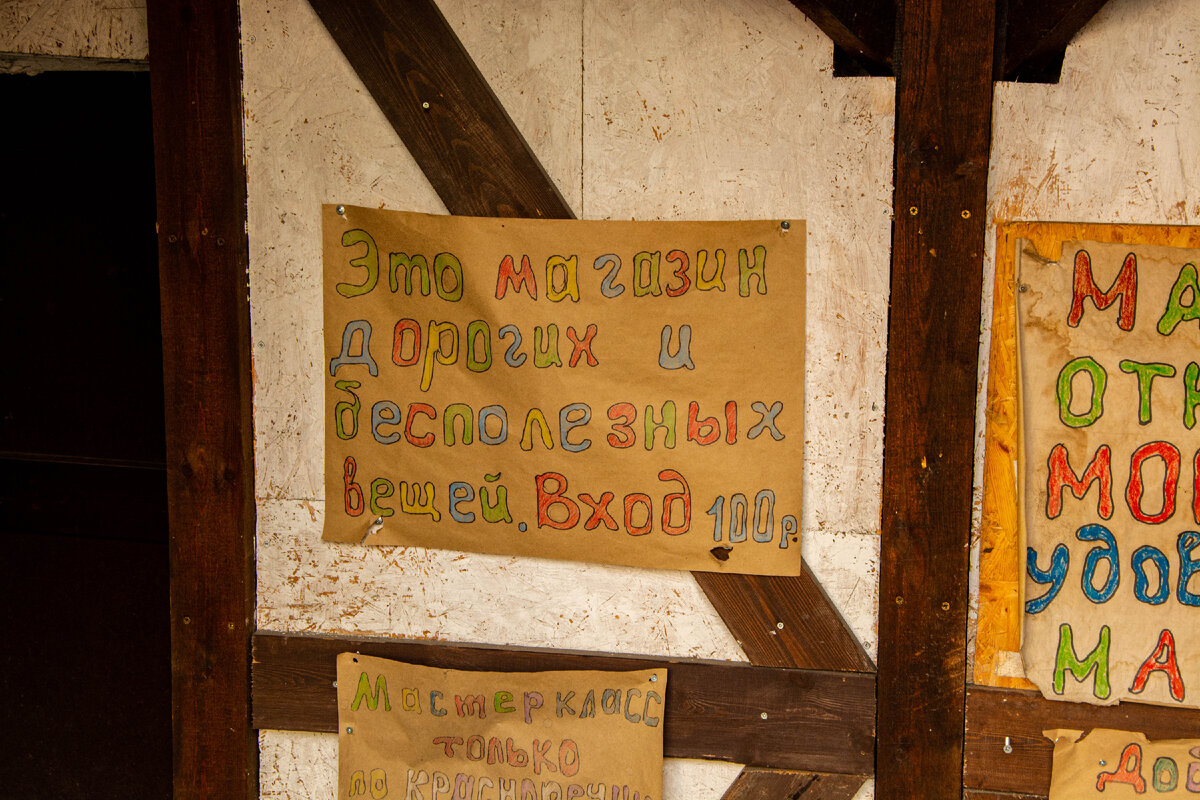 Это магазин
дорогих и
бесполезных
вещей. Вход 100р
Мастер класс
только
по
МА
МО
МА